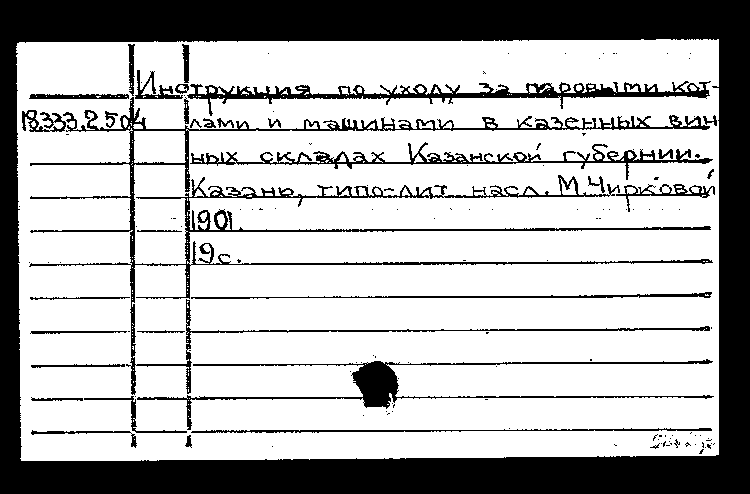 Инструкция по уходу за паровыми кот-
18.333.2.504 лами и машинами в казенных вин-
ных складах Казанской губернии.
Казань, типо-лит. насл. М.Чирковой
1901.
19с.